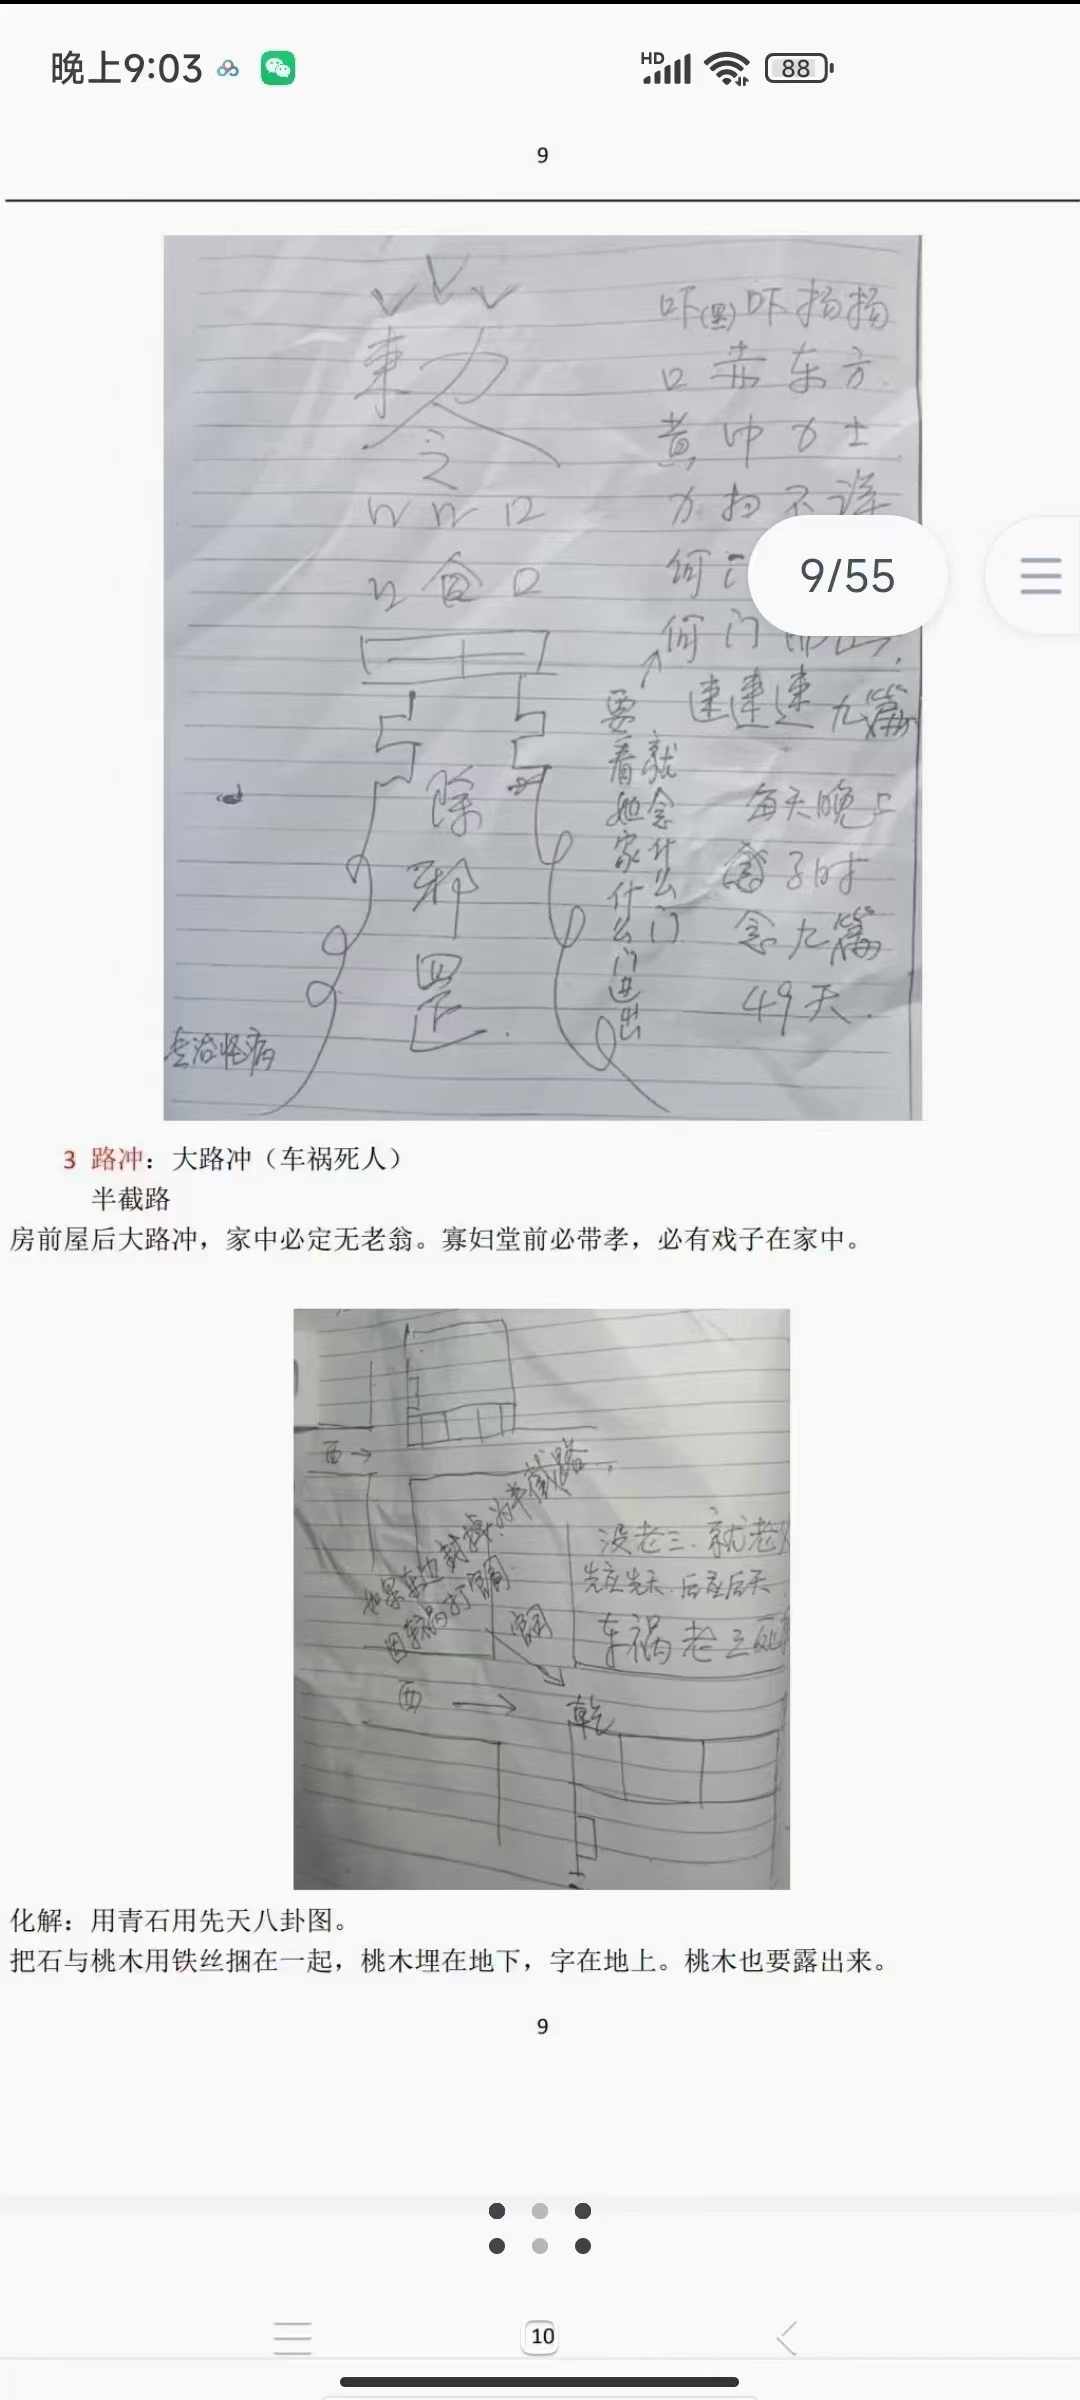 晚上9:03
HD
88
9
敕力
令
除
邪
罡
专治怪病
口 东方
黄 力士
力扫不详
何
何门
速速速 九篇
要看她家什么门进出
就念什么门
每天晚上
子时
念九篇
49天.
9/55
3 路冲：大路冲（车祸死人）
半截路
房前屋后大路冲，家中必定无老翁。寡妇堂前必带孝，必有戏子在家中。
西→
如果东边封掉为半截路
西
没老三.就老
先产先天.后产后天
车祸老三死
乾
化解：用青石用先天八卦图。
把石与桃木用铁丝捆在一起，桃木埋在地下，字在地上。桃木也要露出来。
9
10